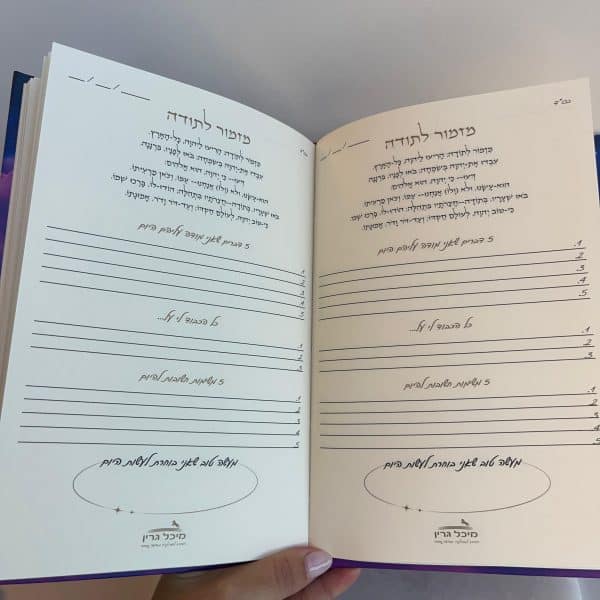 בס"ד
__/__/__
מזמור לתודה
מִזְמוֹר לְתוֹדָה: הָרִיעוּ לַיהוָה, כָּל-הָאָרֶץ.
עִבְדוּ אֶת-יְהוָה בְּשִׂמְחָה; בֹּאוּ לְפָנָיו, בִּרְנָנָה.
דְּעוּ-- כִּי יְהוָה, הוּא אֱלֹהִים:
הוּא-עָשָׂנוּ, ולא (וְלוֹ) אֲנַחְנוּ-- עַמּוֹ, וְצֹאן מַרְעִיתוֹ.
בֹּאוּ שְׁעָרָיו, בְּתוֹדָה--חֲצֵרֹתָיו בִּתְהִלָּה; הוֹדוּ-לוֹ, בָּרְכוּ שְׁמוֹ.
כִּי-טוֹב יְהוָה, לְעוֹלָם חַסְדּוֹ; וְעַד-דֹּר וָדֹר, אֱמוּנָתוֹ.
5 דברים שאני מודה עליהם היום
.1
.2
.3
.4
.5
כל הכבוד לי על...
.1
.2
.3
5 משימות חשובות להיום
.1
.2
.3
.4
.5
מעשה טוב שאני בוחרת לעשות היום
מיכל גרין
בס"ד
__/__/__
מזמור לתודה
מִזְמוֹר לְתוֹדָה: הָרִיעוּ לַיהוָה, כָּל-הָאָרֶץ.
עִבְדוּ אֶת-יְהוָה בְּשִׂמְחָה; בֹּאוּ לְפָנָיו, בִּרְנָנָה.
דְּעוּ-- כִּי יְהוָה, הוּא אֱלֹהִים:
הוּא-עָשָׂנוּ, ולא (וְלוֹ) אֲנַחְנוּ-- עַמּוֹ, וְצֹאן מַרְעִיתוֹ.
בֹּאוּ שְׁעָרָיו, בְּתוֹדָה--חֲצֵרֹתָיו בִּתְהִלָּה; הוֹדוּ-לוֹ, בָּרְכוּ שְׁמוֹ.
כִּי-טוֹב יְהוָה, לְעוֹלָם חַסְדּוֹ; וְעַד-דֹּר וָדֹר, אֱמוּנָתוֹ.
5 דברים שאני מודה עליהם היום
.1
.2
.3
.4
.5
כל הכבוד לי על...
.1
.2
.3
5 משימות חשובות להיום
.1
.2
.3
.4
.5
מעשה טוב שאני בוחרת לעשות היום
מיכל גרין